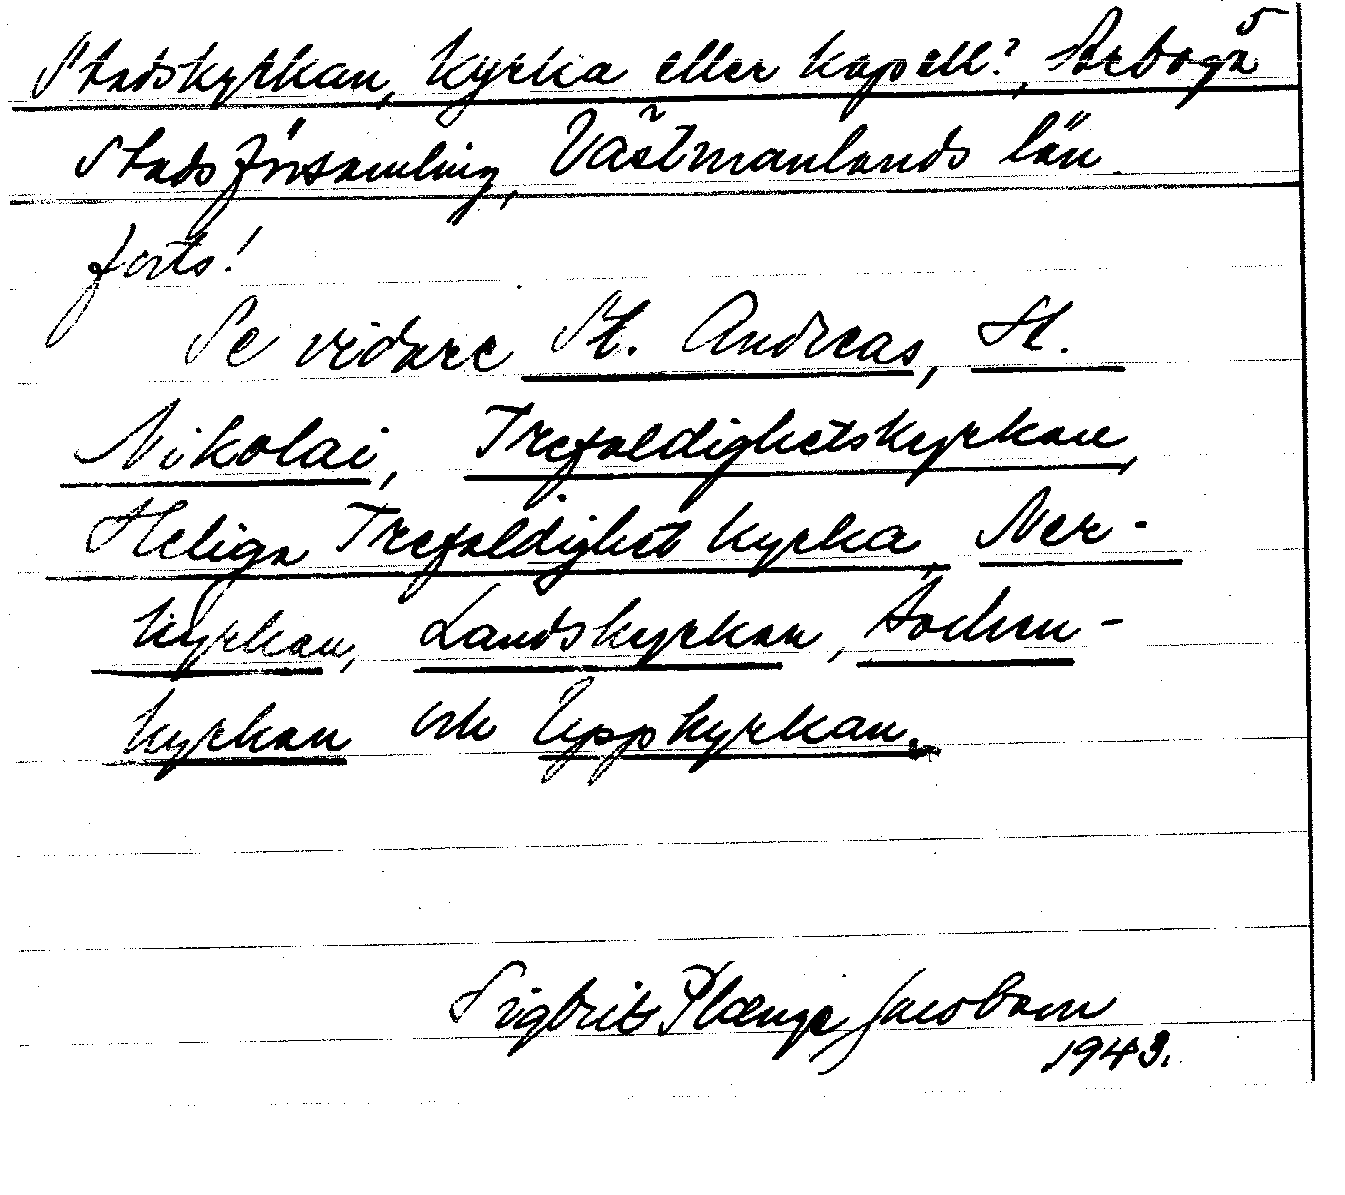 5
Stadskyrkan, kyrka eller kapell?, Arboga
stadsförsamling, Västmanlands län.
forts!
Se vidare St. Andreas, St.
Nikolai, Trefaldighetskyrkan,
Heliga Trefaldighets kyrka, Ner-
kyrkan, Landskyrkan, Socken-
kyrkan och Uppkyrkan.
Sigbrit Plænge Jacobson
1943.